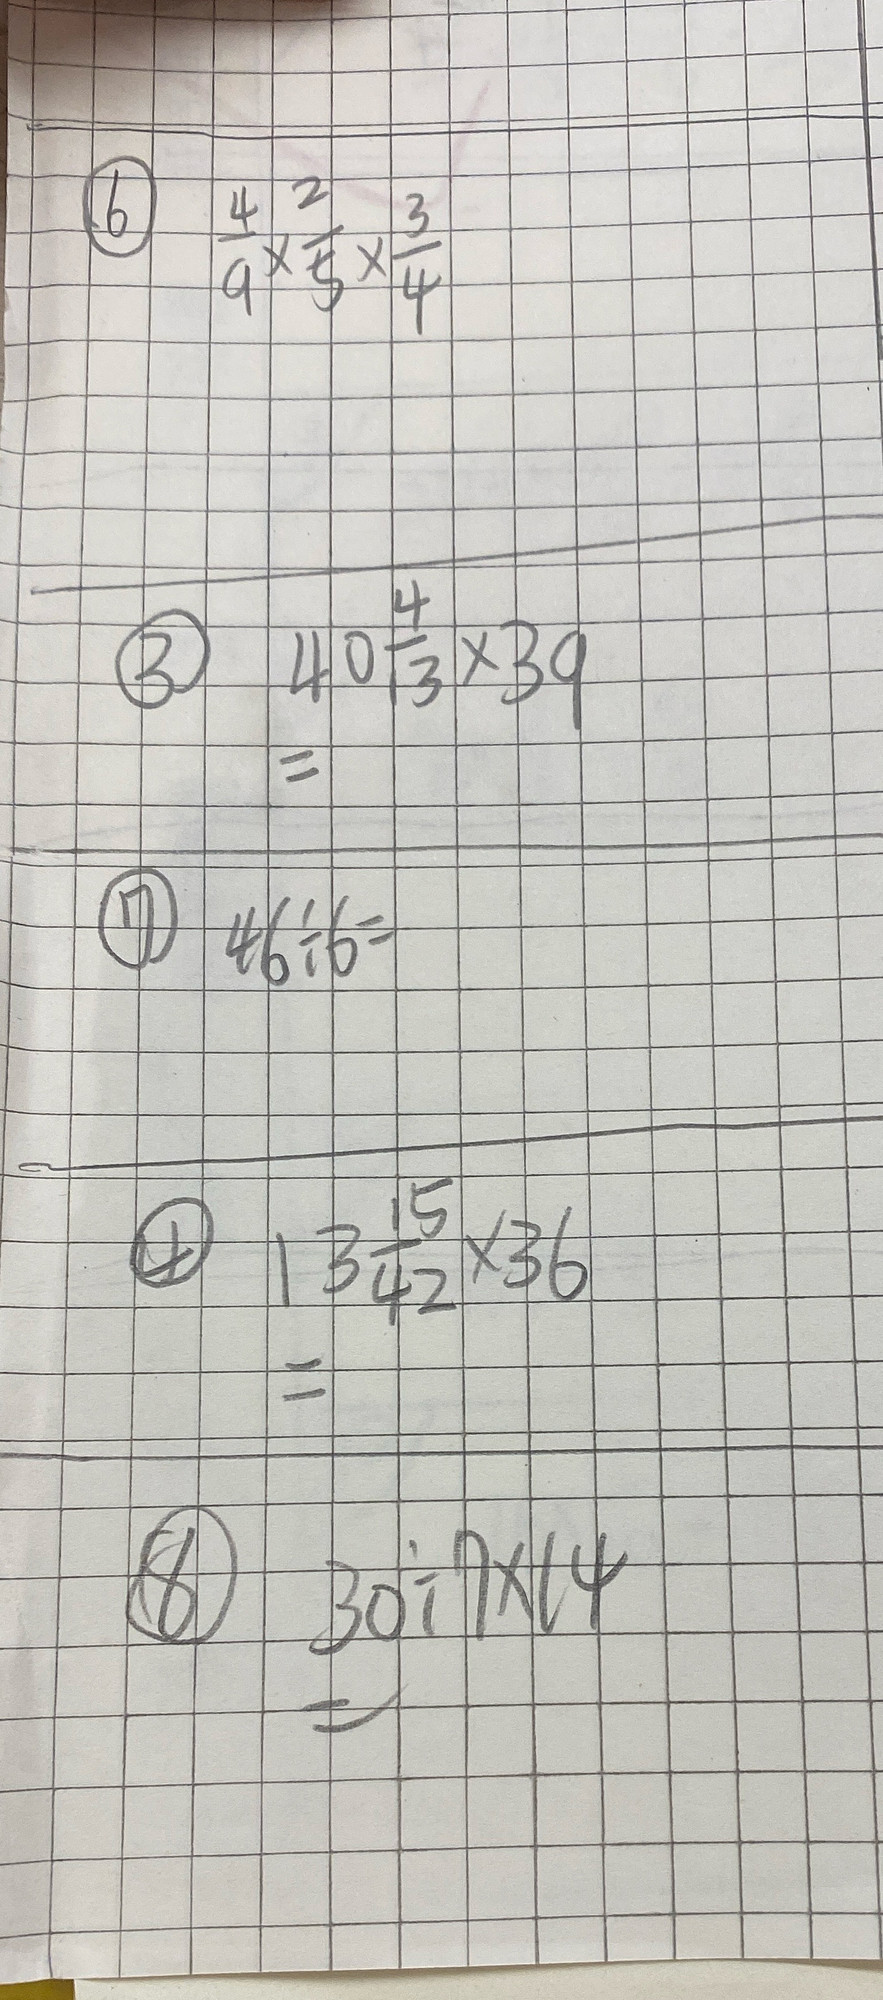 ⑥ 4/9 × 2/5 × 3/4
③ 40 4/13 × 39
=
⑦ 46÷6=
④ 13 15/42 × 36
=
⑧ 30÷7×14
=